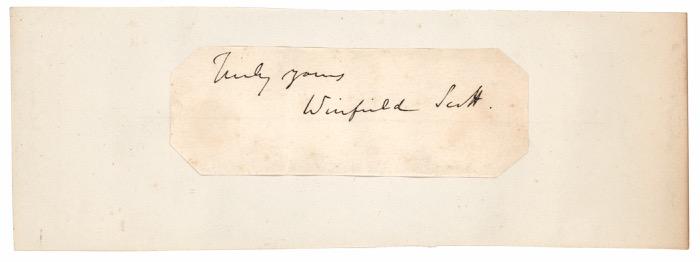 Truly yours
Winfield Scott.